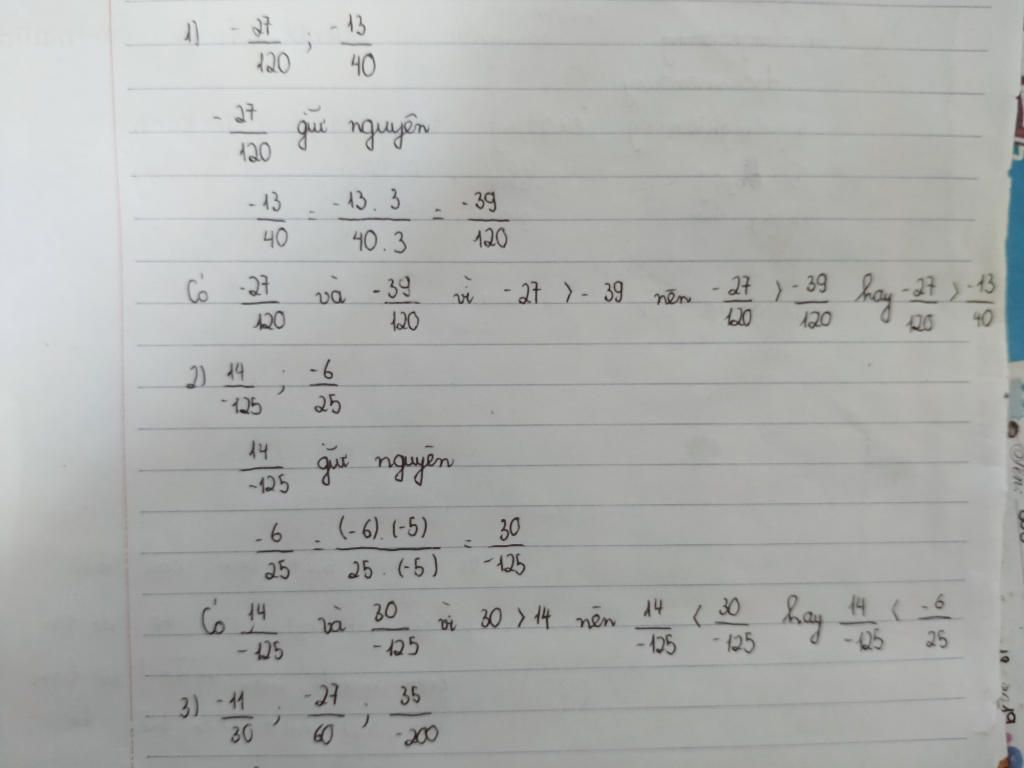 1) -27/120 ; -13/40
-27/120 giữ nguyên
-13/40 = -13.3/40.3 = -39/120
Có -27/120 và -39/120 vì -27 > -39 nên -27/120 > -39/120 hay -27/120 > -13/40
2) 14/-125 ; -6/25
14/-125 giữ nguyên
-6/25 = (-6).(-5)/25.(-5) = 30/-125
Có 14/-125 và 30/-125 vì 30 > 14 nên 14/-125 < 30/-125 hay 14/-125 < -6/25
3) -11/30 ; -27/60 ; 35/-200